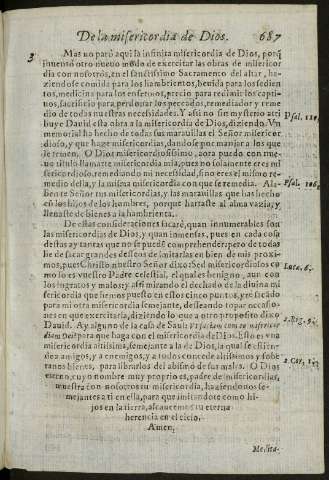 De la misericordia de Dios. 687
3 Mas no paró aqui la infinita misericordia de Dios, porq̃
inuentó otro nueuo modo de exercitar las obras de misericor
dia con nosotros, en el sanctissimo Sacramento del altar, ha-
ziendose comida para los hambrientos, beuida para los sedien
tos, medicina para los enfermos, precio para redimir los capti-
uos, sacrificio para perdonar los peccados, remediador y reme
dio de todas nuestras necesidades. Y assi no sin mysterio atri
buye Dauid esta obra a la misericordia de Dios, diziendo. Vn Psal. 110.
memorial ha hecho de todas sus marauillas el Señor misericor
dioso, y que haze misericordias, dandose por manjar a los que
le temen. O Dios misericordiosissimo, aora puedo con nue
uo titulo llamarte misericordia mia, pues no solamente eres mi
sericordioso, remediando mi necessidad, sino eres el mismo re-
medio della, y la misma misericordia con que se remedia. Ala- Psal. 106.
bente Señor tus misericordias, y las marauillas que has hecho
en los hijos de los hombres, porque hartaste al alma vazia, y
llenaste de bienes a la hambrienta.
De estas consideraciones sacaré, quan innumerables son
las misericordias de Dios, y quan inmensas, pues en cada cosa
destas ay tantas que no se puedẽ comprehender: pero de todas
he de sacar grandes desseos de imitarlas en bien de mis proxi-
mos, pues Christo nuestro Señor dixo Sed misericordiosos co Luc. 6.
mo lo es vuestro Padre celestial, el qual es benigno, aun con
los ingratos y malos: y assi mirando el dechado de la diuina mi
sericordia que hemos puesto en estos cinco puntos, yré sacādo
para mi otra misericordia semejante, desseando topar occasio-
nes en que exercitarla, diziendo lo que a otro proposito dixo 2. Reg. 9.
Dauid. Ay alguno de la casa de Saul: Vt faciam cum eo misericor
diam Dei? para que haga con el misericordia de Dios. Esto es vna
misericordia altissima, semejante a la de Dios, la qual se estiēn-
dea amigos, y a enemigos, y a todos concede altissimos y sobe 2. Cor. 1.
ranos bienes, para librarlos del abismo de sus males. O Dios
eterno, cuyo nombre muy proprio es, padre de misericordias,
muestra con nosotros tu misericordia, haziendonos se-
mejantes a ti en ella, para que imitandote como hi-
jos en la tierra, alcancemos tu eterna
herencia en el cielo,
Amen.
Medita-